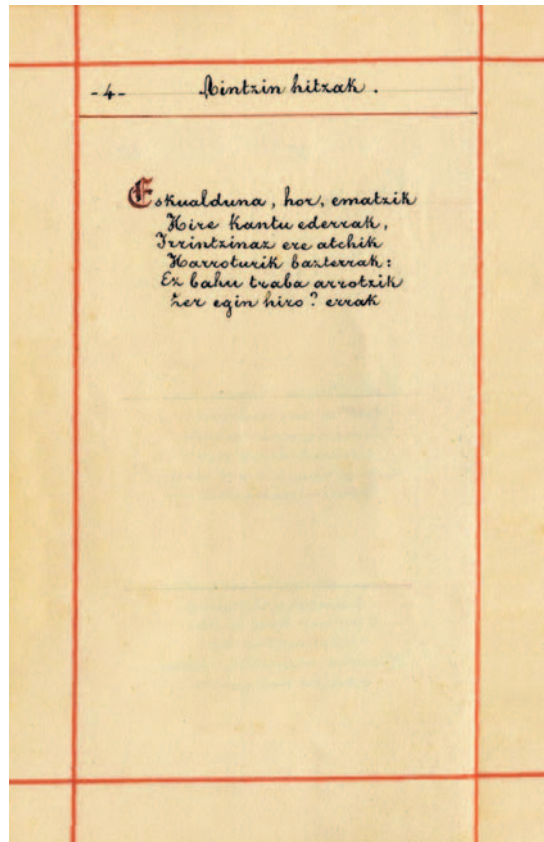 -4- Aintzin hitzak.
Eskualduna, hor, ematzik
Hire kantu ederrak,
Irrintzinaz ere atchik
Harroturik bazterrak:
Ez bahu traba arrotzik
Zer egin hiro? errak